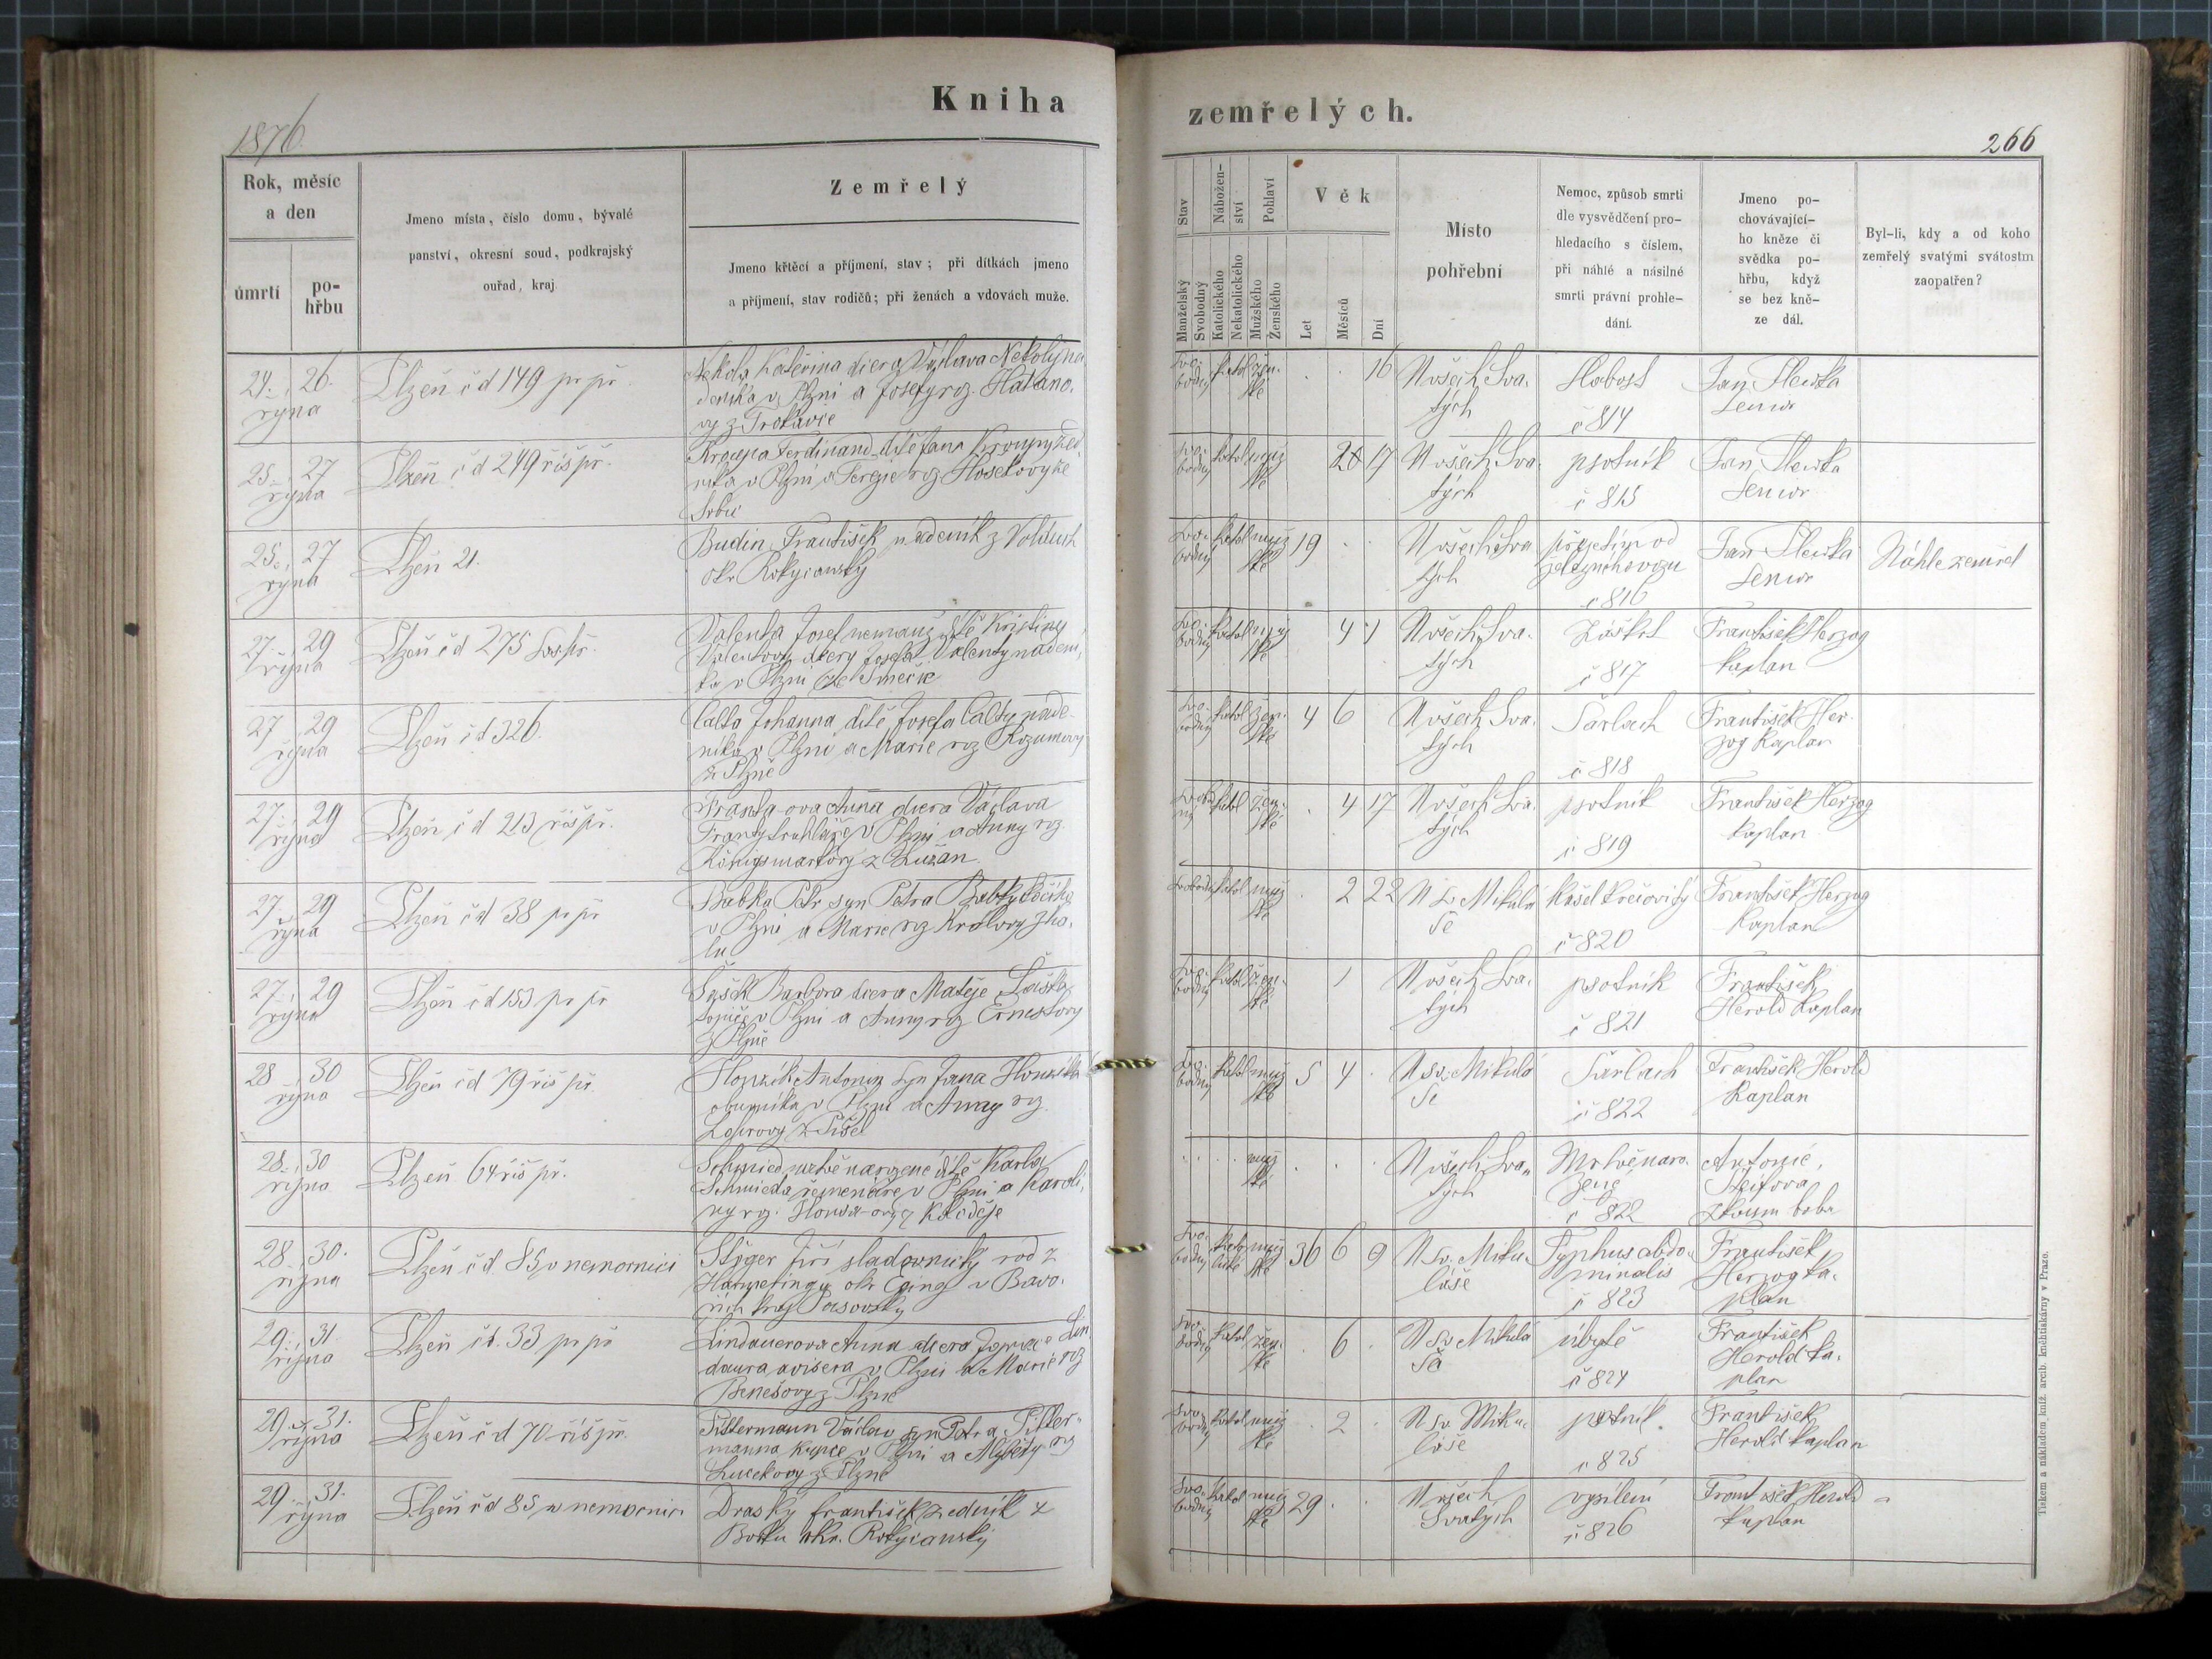 Kniha
zemřelých.
1876.
266
Rok, měsíc
a den
úmrtí
po-
hřbu
Jmeno místa, číslo domu, bývalé
panství, okresní soud, podkrajský
ouřad, kraj
Zemřelý
Jmeno křtěcí a příjmení, stav; při dítkách jmeno
a příjmení, stav rodičů; při ženách a vdovách muže.
Stav
Nábožen-
ství
Pohlaví
Věk
Manželský
Svobodný
Katolického
Nekatolického
Mužského
Ženského
Let
Měsíců
Dní
Místo
pohřební
Nemoc, způsob smrti
dle vysvědčení pro-
hledacího s číslem,
při náhlé a násilné
smrti právní prohle-
dání.
Jmeno po-
chovávající-
ho kněze či
svědka po-
hřbu, když
se bez kně-
ze dál.
Byl-li, kdy a od koho
zemřelý svatými svátostmi
zaopatřen?
24. 26.
října
Plzeň čd 149 pr př
Kateřina dcera
v Plzni a Josefy roz.
Svo-
bodný
katol
žen-
ské
16
U všech Sva-
tých
Slabost
č 814
Jan
Senior
25. 27
října
Plzeň čd 249 říš př.
Kroupa Ferdinand dítě Jana Kroupy
v Plzni a Terezie roz.
Svo-
bodný
katol
muž
ské
17
U všech Sva-
tých
psotník
č 815
Jan
Senior
25. 27
října
Plzeň 21.
Budín František nádeník z Volduch
okr Rokycanský
Svo-
bodný
katol
muž
ské
19
U všech Sva
tých
přejetím od
č 816
Jan
Senior
Náhle zemřel
27. 29
října
Plzeň čd 275
Valenta Josef nemanž dítě Kristiny
Valentovy dcery Josefa Valenty nádení-
ka v Plzni
Svo-
bodný
katol
muž
ské
4 1
U všech Sva-
tých
Záškrt
č 817
František Herzog
kaplan
27 29
října
Plzeň čd 326.
Calta Johanna dítě Josefa Calty náde-
níka v Plzni a Marie roz Rozumovy
z Plzně
Svo-
bodný
katol
žen-
ské
4 6
U všech Sva-
tých
Šarlach
č 818
František Her-
zog Kaplan
27. 29
října
Plzeň čd 213 říš př.
Franta-ova Anna dcera Václava
Franty truhláře v Plzni a Anny roz.
Königsmarkovy z Lužan
katol
žen-
ské
4 17
U všech Sva-
tých
psotník
č 819
František Herzog
Kaplan
27. 29
října
Plzeň čd 38 pr př
Babka Petr syn Petra Babky kočího
v Plzni a Marie roz Královy
katol
muž
ské
2 22
U Sv Mikulá
še
Kašel křečovitý
č 820
František Herzog
Kaplan
27. 29
října
Plzeň čd 153 pr př
Barbora dcera Matěje
v Plzni a Anny roz Ernestovy
z Plzně
Svo-
bodný
katol
žen-
ské
1
U všech Sva-
tých
psotník
č 821
František
Herold Kaplan
28 30
října
Plzeň čd 79 říš př.
Honzík Antonín syn Jana Honzíka
obuvníka v Plzni a Anny roz
Svo-
bodný
katol
muž
ské
5 4
U sv. Mikulá
še
Šarlach
č 822
František Herold
Kaplan
28. 30
října
Plzeň 64 říš př.
Schmied mrtvě narozené dítě Karla
Schmieda řemenáře v Plzni a Karoli-
ny roz.
muž
ské
U všech Sva-
tých
Mrtvě naro-
zené
č 822
Antonie
zkoum baba
28. 30.
října
Plzeň čd 85 v nemocnici
Stöger Jiří sladovnický rod z
okr v Bavo-
řích kraj Pasovský
Svo-
bodný
kato
lické
muž
ské
36 6 9
U Sv. Miku-
láše
Typhus abdo-
minalis
č 823
František
Herzog ka-
plan
29. 31.
října
Plzeň čd. 33 pr př
Lindauerova Anna dcera Lin
dauera v Plzni a Marie roz
Benešovy z Plzně
Svo-
bodný
katol
žen-
ské
6
U Sv Mikulá
še
úbytě
č 824
František
Herold ka-
plan
29. 31.
října
Plzeň čd 70 říš př.
Václav syn Petra
manna kupce v Plzni a Alžběty roz
z Plzně
Svo
bodný
katol
muž
ské
2
U Sv. Miku-
láše
psotník
č 825
František
Herold kaplan
29 31.
října
Plzeň čd 85 v nemocnici
Draský František zedník z
okr. Rokycanský
Svo-
bodný
katol
muž
ské
29
U všech
Svatých
vysílení
č 826
František Herold
kaplan
Tiskem a nákladem kníž. arcib. knihtiskárny v Praze.